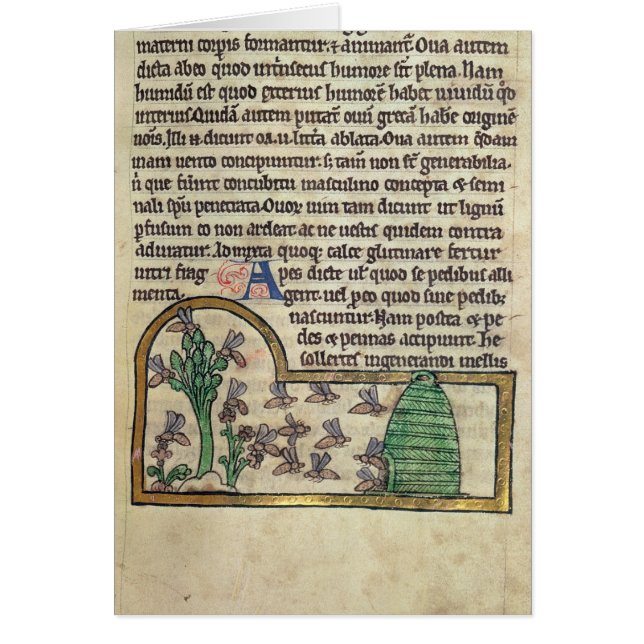 materni corpis formantur. ⁊ animant᷑. Oua autem
dicta abeo quod int̾insecus humore st̄ plena. Nam
humidū est quod exterius humorē habet uiuidū qd̄
interius. Quidā autem putāt ouū grecā habe originē
nois. Illi n̄ dicunt oa. u. litt̾a ablata. Oua autem qdam
inani uento concipiuntur. s; tam̄ non st̄ generabilia.
n̄ que fūint concubitu masculino concepta ⁊ semi
nali spū penetrata. Ouor uim tam dicunt ut lignū
pfusum eo non ardeat ac ne uestis quidem contra
aduratur. Admixta quoq; calce glutinare fertur
uitri frag
menta.
Apes dicte ul̾ quod se pedibus alli
gent. uel ꝓeo quod sine pedib;
nascuntur. Nam postea ⁊ pe
des ⁊ pennas accipiunt. He
sollertes ingenerandi mellis